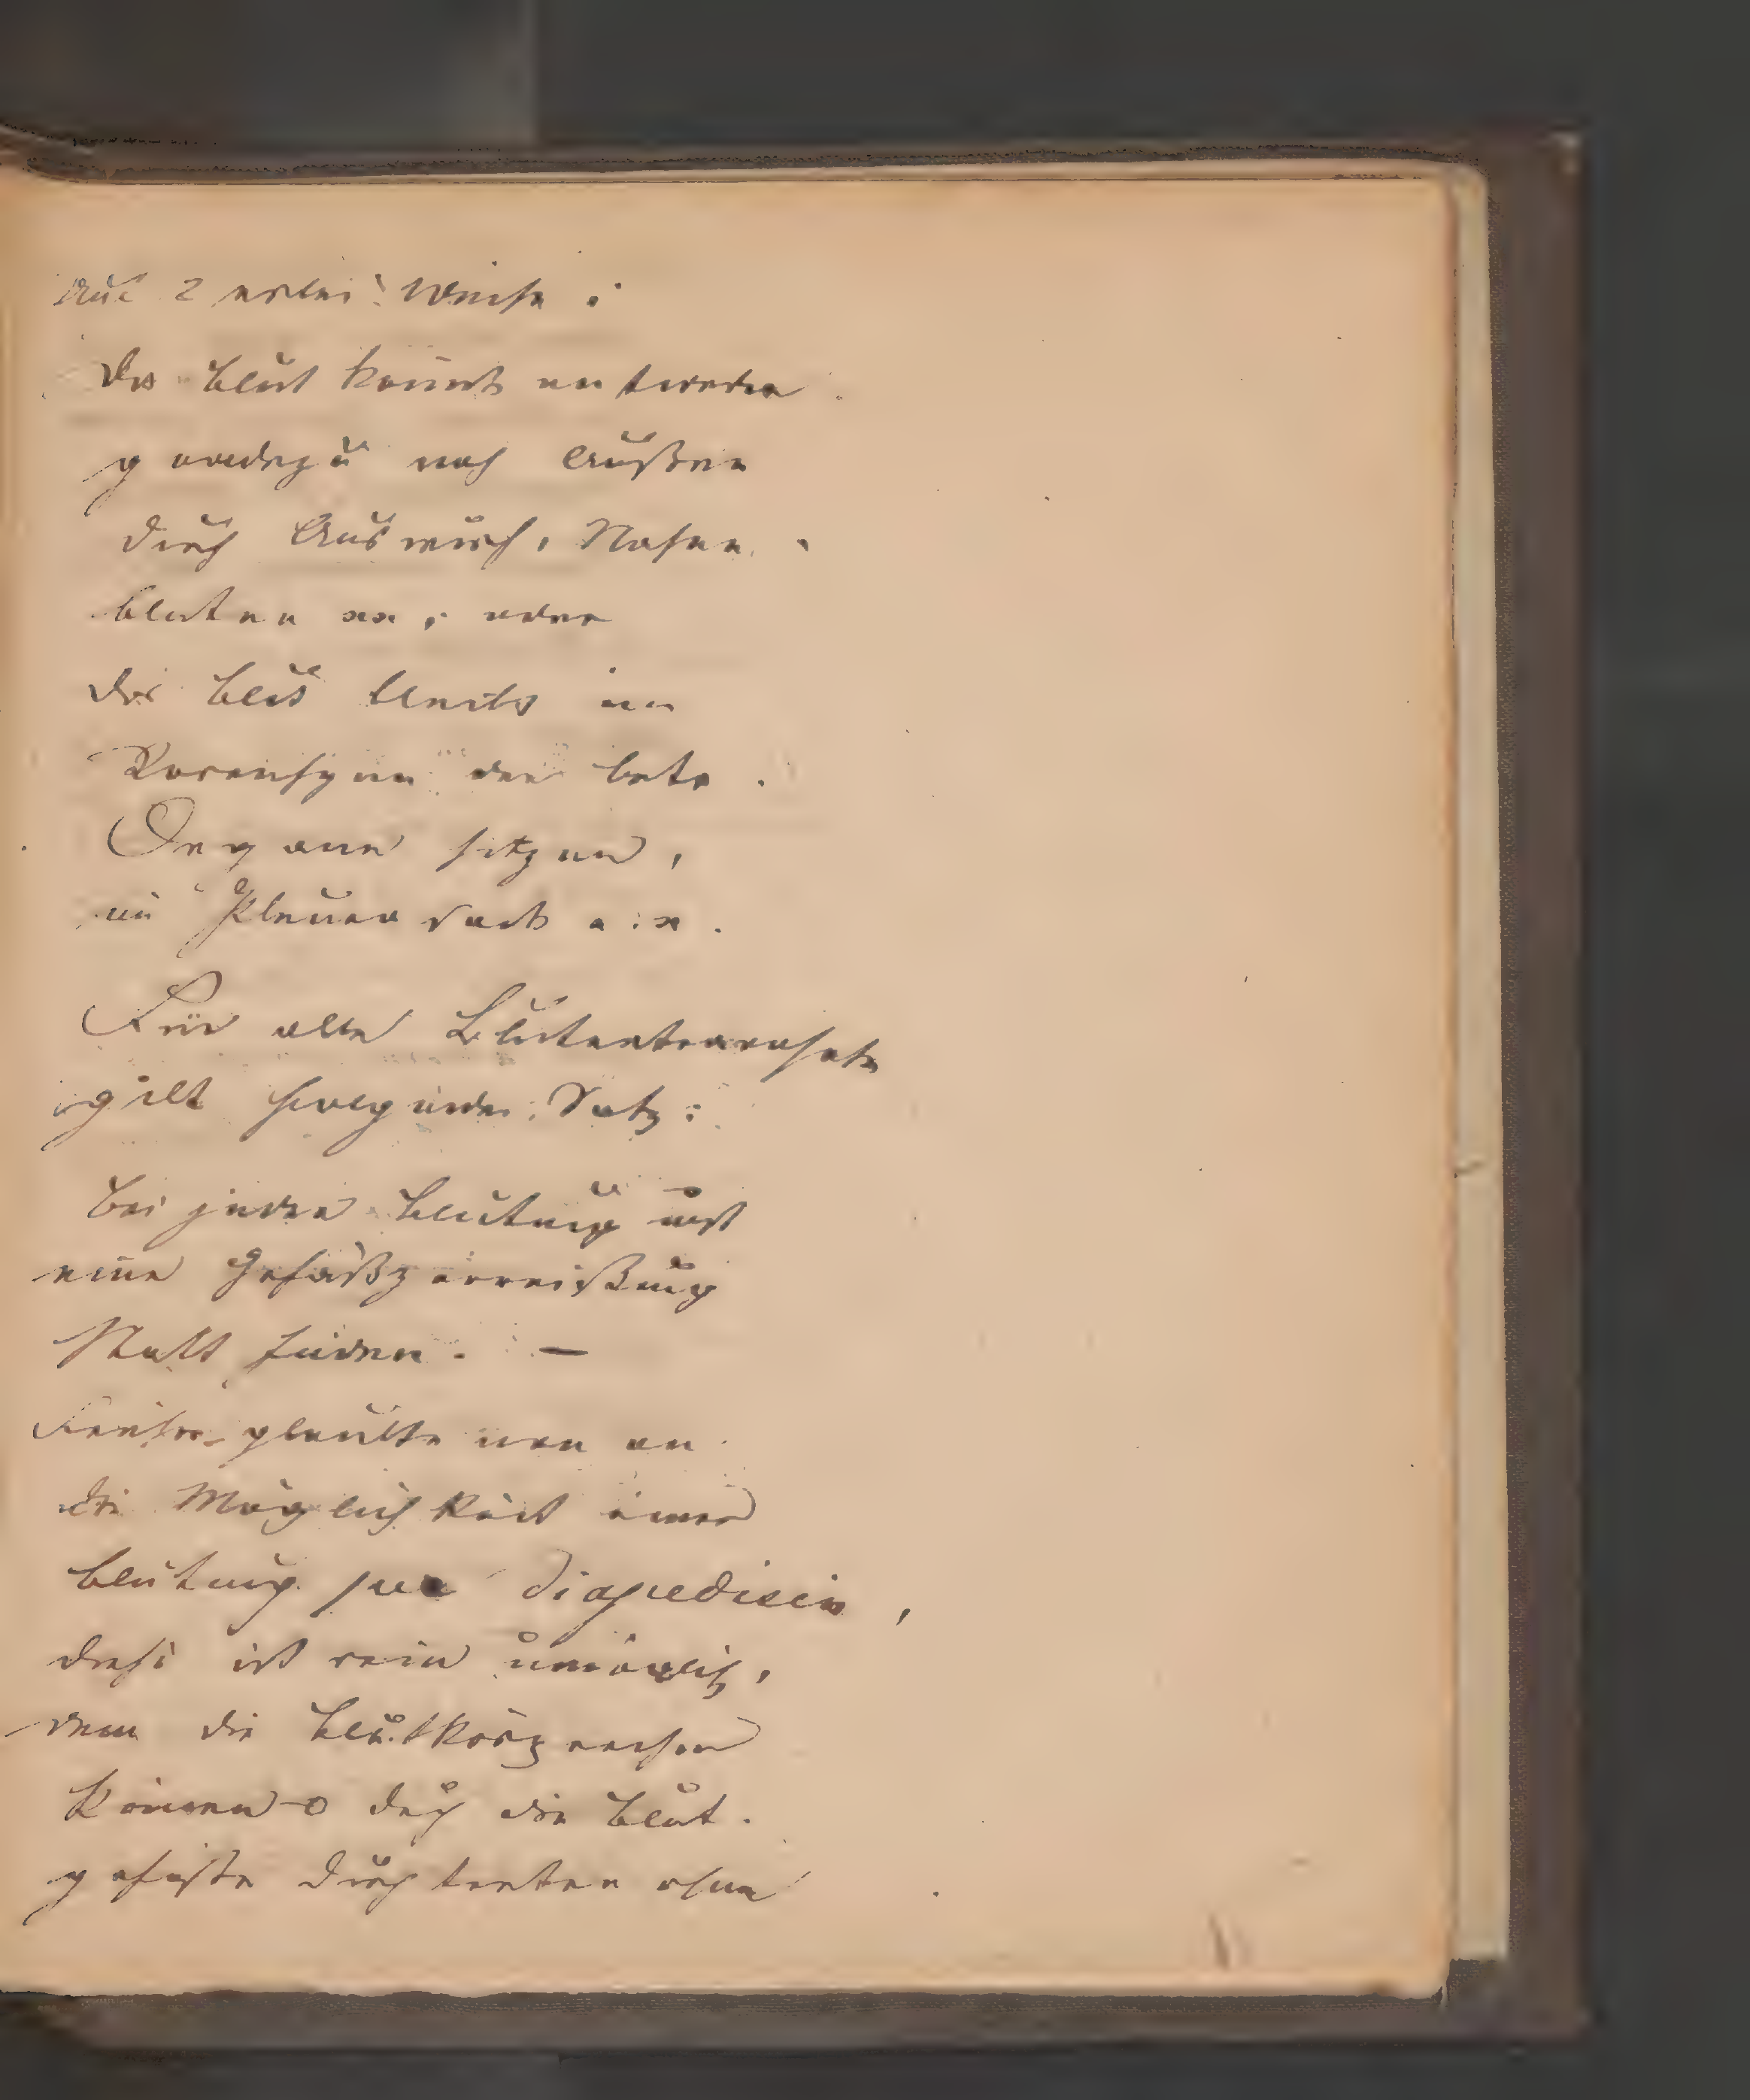 Auf 2 erlei Weise :
Das Blut kommt entweder
geradezu nach Außen
durch Auswurf, Nasen
bluten etc, oder
das Blut bleibt im
Parenchym der betr.
Organe sitzen,
im Pleurasack etc.
Für alle Blutextravasate
gilt folgender Satz :
Bei jeder Blutung muß
eine Gefäßzerreißung
Statt finden. —
Früher glaubte man an
die Möglichkeit einer
Blutung per diapedisin,
dieß ist rein unmöglich,
denn die Blutkörperchen
können durch die Blut-
gefäße durchtreten ohne